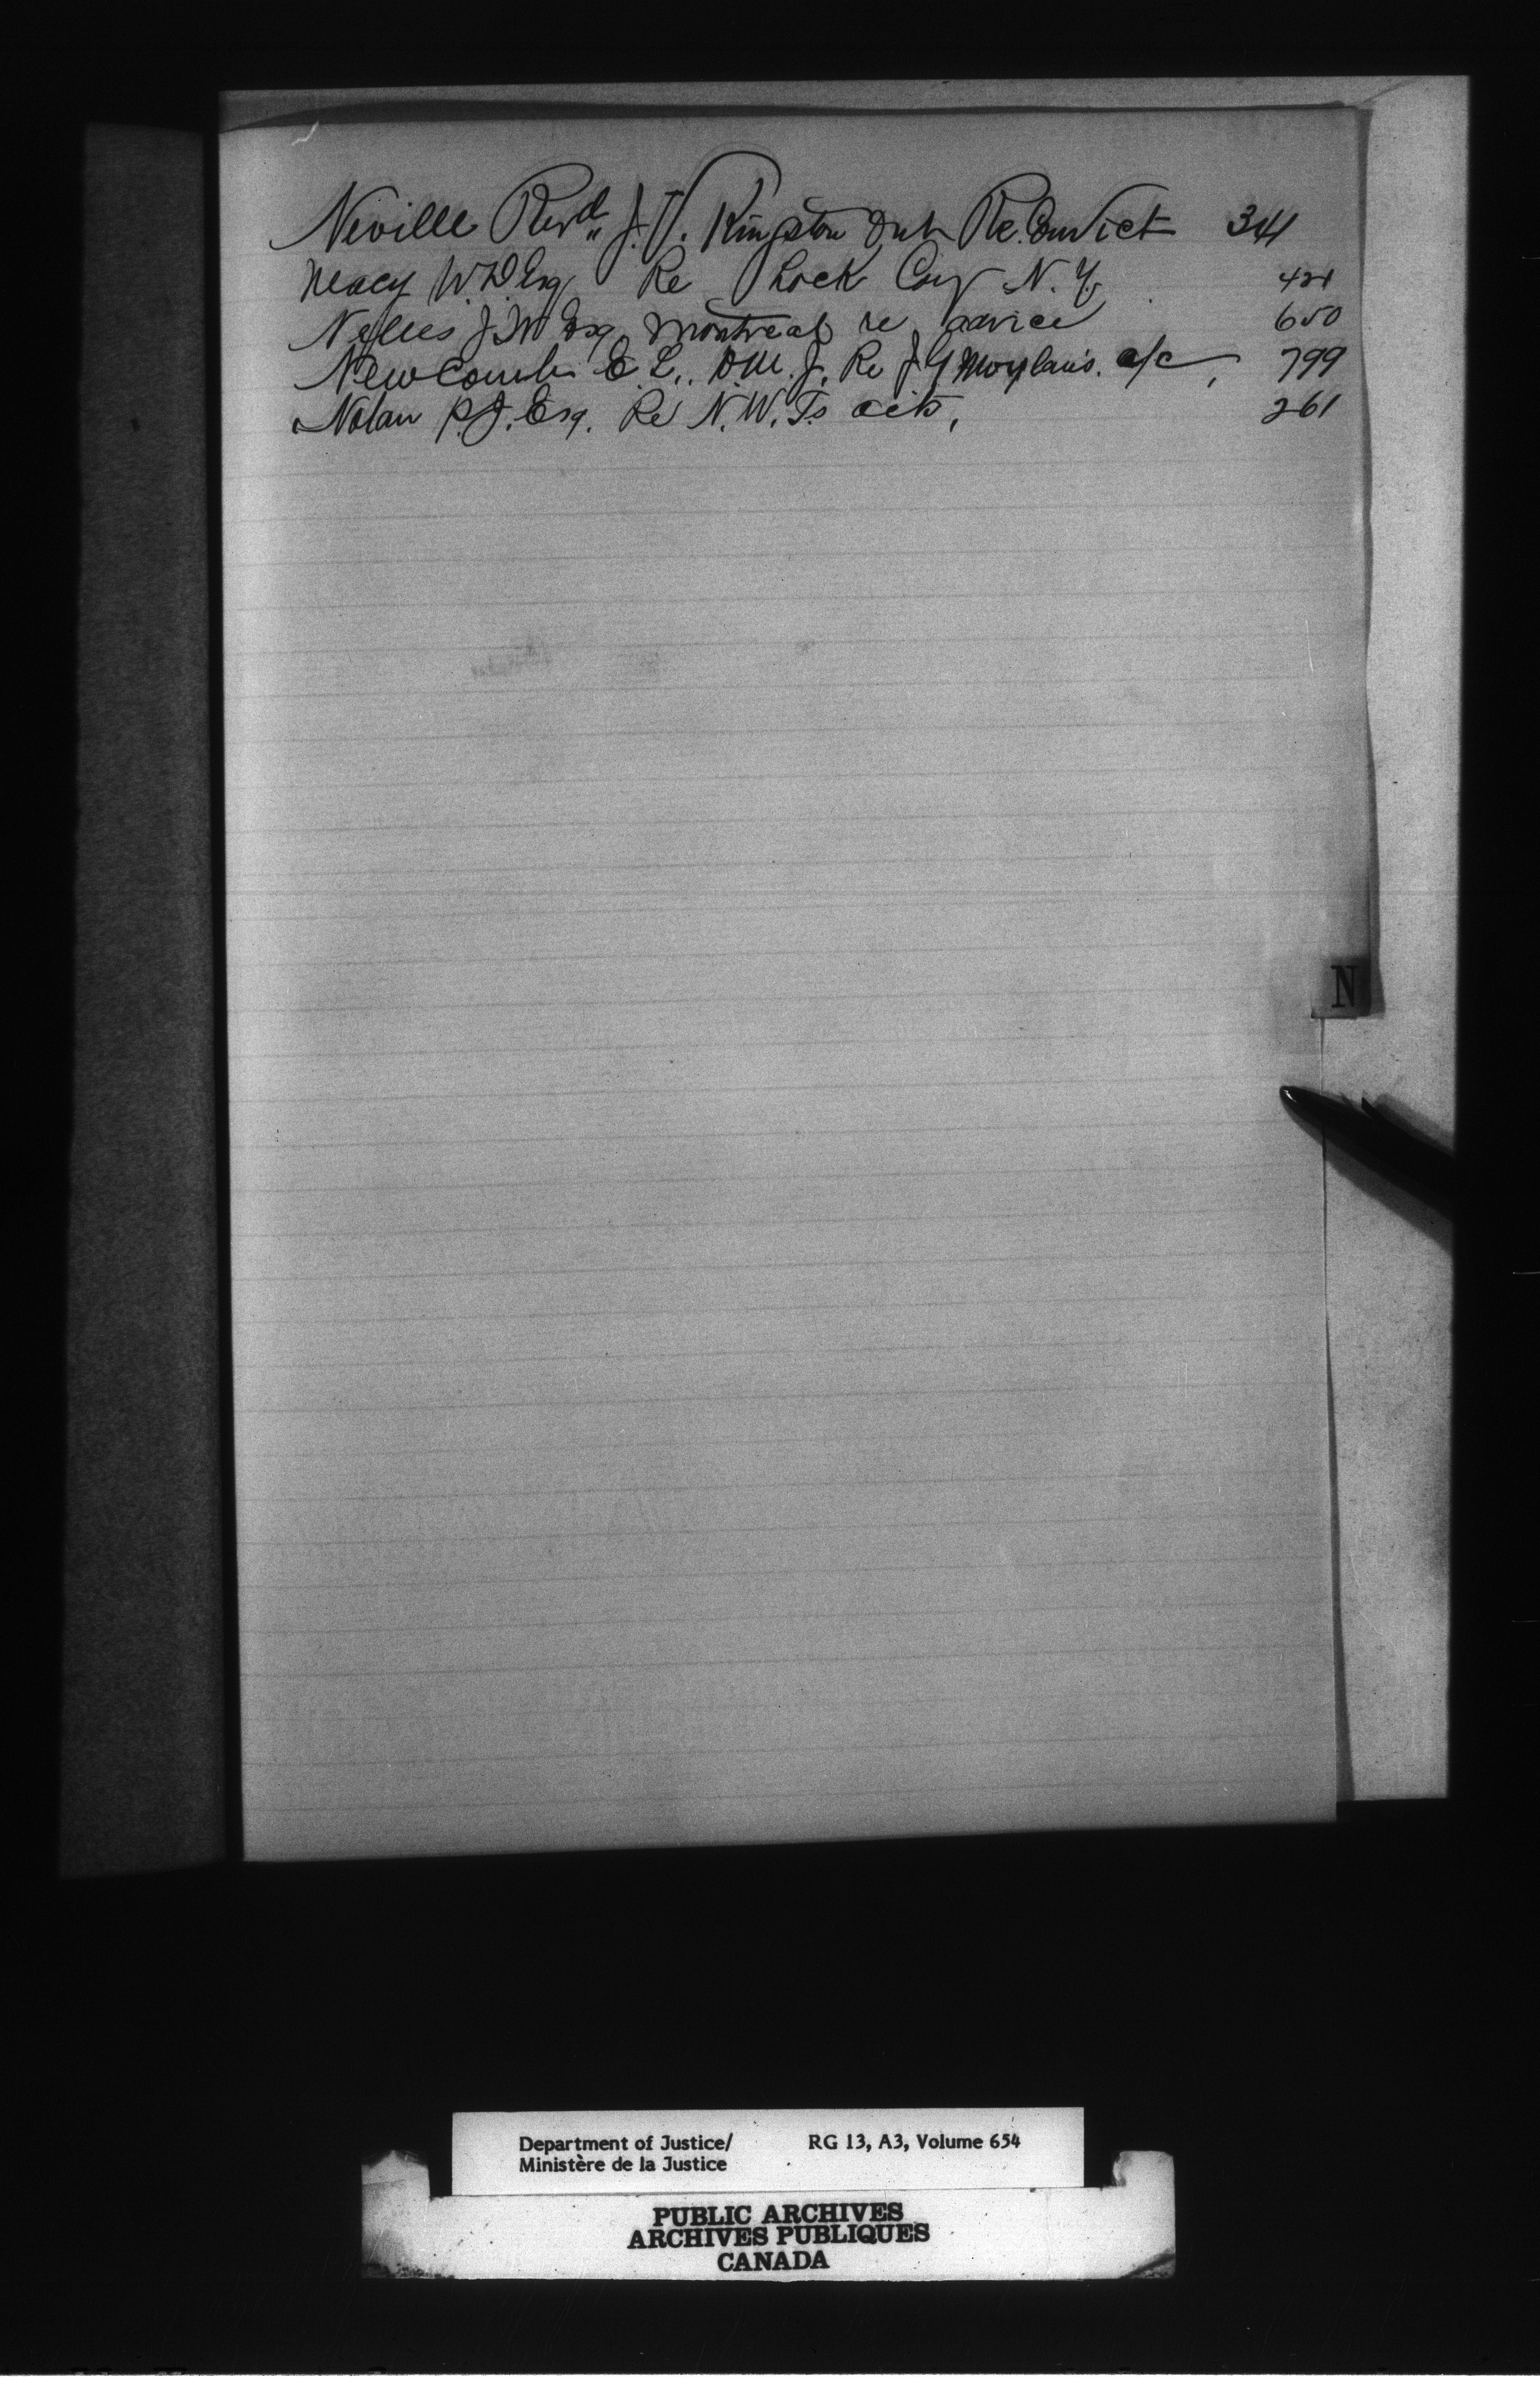 Neville Revd J. V. Kingston Ont Re. Convict 344
Neacy W. D Esq Re Lock Coy N. Y. 421
Nelles J. M Esq Montreal re advice 650
Newcombe E. L. D.M.J. Re J G Moylan's. a/c, 799
Nolan P. J. Esq. Re N. W. Ts acts, 261
N
Department of Justice/ RG 13, A3, Volume 654
Ministère de la Justice
PUBLIC ARCHIVES
ARCHIVES PUBLIQUES
CANADA